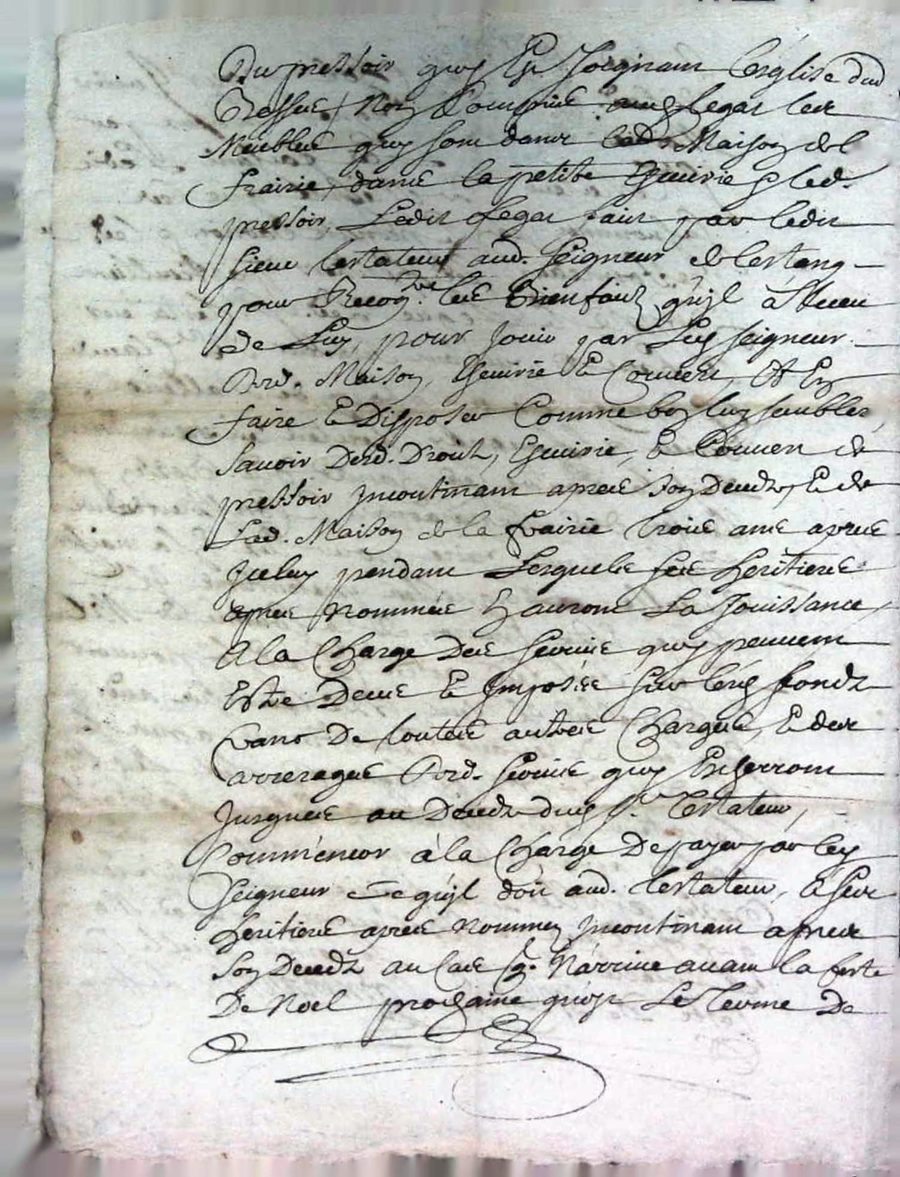 Du pressoir quy Est Joignam l'esglise dud
Non Comprins aud legat les
Meubles quy som dans lad. Maison de l
frairie, dans la petite Escuirie & led.
pressoir, Ledit legat fait par ledit
sieur testateur aud. Seigneur de lestang
pour Recog.ce les Bienfaitz qu'il à Receu
de Luy, pour Jouir par Luy seigneur
Desd. Maison, Escuirie & Couvert, Et En
faire & Disposer Comme bon luy semblera
Savoir Desd. Droitz, Escuirie, & Couvert de
pressoir Incontinam apres son Decedz, & de
Lad. Maison de la frairie trois ans apres
Iceluy pendam Lesquels ses heritiers
apres nommés Hauront La Jouissance,
A la Charge des servis quy peuvem
Estre Deus & Imposés sur lesd. fondz
francs De toutes autres Charges, & des
arrerages Desd. servis quy Escherront
Jusques au Decedz dud. Sr. Testateur,
Comm'encor à la Charge De payer par led.
Seigneur Ce qu'il doit aud. testateur, à ses
heritiers apres nommez Incontinam apres
son Decedz au Cas qu'il N'arrive avam la feste
De Noel prochaine qu'est Le terme De